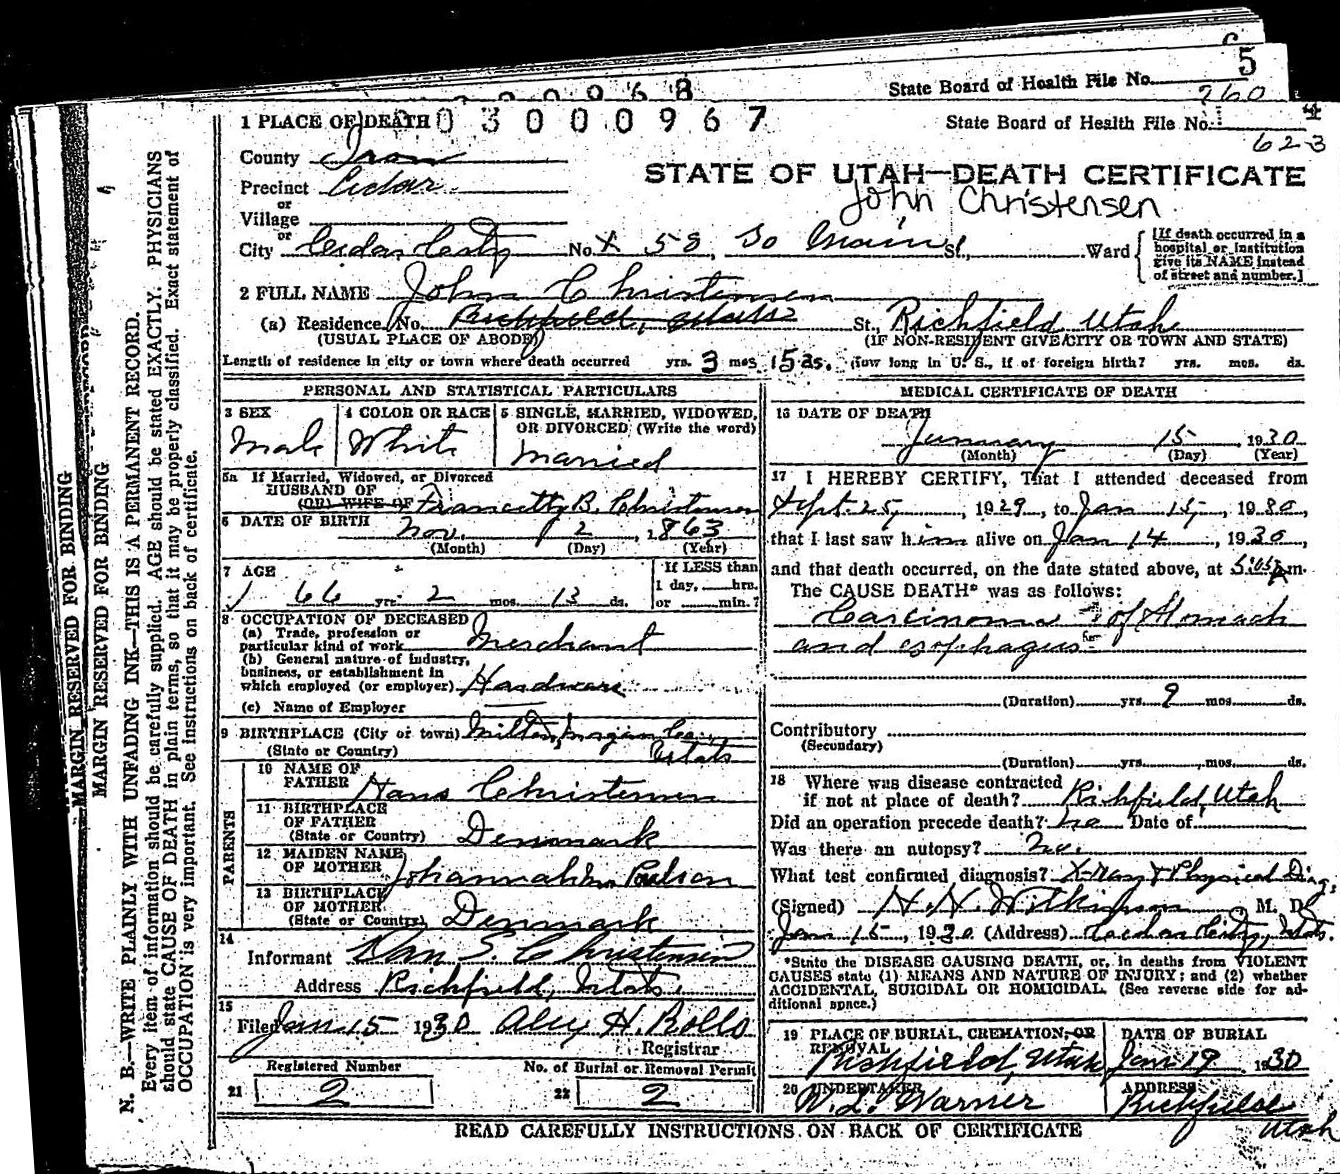 5
State Board of Health File No.
260
1 PLACE OF DEATH 03000967
State Board of Health File No. 4
623
County Iron
STATE OF UTAH—DEATH CERTIFICATE
Precinct Cedar
or
John Christensen
Village
or
City Cedar City No. X 58 So Main St., Ward
[If death occurred in a hospital or institution give its NAME instead of street and number.]
2 FULL NAME John Christensen
(a) Residence, No. Richfield, Utah St., Richfield Utah
(USUAL PLACE OF ABODE) (IF NON-RESIDENT GIVE CITY OR TOWN AND STATE)
Length of residence in city or town where death occurred yrs. 3 mos. 15 ds. How long in U. S., if of foreign birth? yrs. mos. ds.
PERSONAL AND STATISTICAL PARTICULARS
3 SEX
Male
4 COLOR OR RACE
White
5 SINGLE, MARRIED, WIDOWED,
OR DIVORCED (Write the word)
Married
5a If Married, Widowed, or Divorced
HUSBAND OF
(OR) WIFE OF B. Christensen
6 DATE OF BIRTH Nov. 2, 1863
(Month) (Day) (Year)
7 AGE
66 yrs. 2 mos. 13 ds.
If LESS than
1 day, hrs.
or min.?
8 OCCUPATION OF DECEASED
(a) Trade, profession or
particular kind of work Merchant
(b) General nature of industry,
business, or establishment in
which employed (or employer) Hardware
(c) Name of Employer
9 BIRTHPLACE (City or town) Milton, Morgan Co.,
(State or Country) Utah
PARENTS
10 NAME OF
FATHER Hans Christensen
11 BIRTHPLACE
OF FATHER
(State or Country) Denmark
12 MAIDEN NAME
OF MOTHER Poulson
13 BIRTHPLACE
OF MOTHER
(State or Country) Denmark
14
Informant Christensen
Address Richfield, Utah.
15
Filed Jan 15 1930 Alex H. Rollo
Registrar
Registered Number
21 2
No. of Burial or Removal Permit
22 2
MEDICAL CERTIFICATE OF DEATH
16 DATE OF DEATH
January 15, 1930
(Month) (Day) (Year)
17 I HEREBY CERTIFY, That I attended deceased from
Sept. 25, 1929, to Jan 15, 1930,
that I last saw him alive on Jan 14, 1930,
and that death occurred, on the date stated above, at m.
The CAUSE DEATH* was as follows:
Carcinoma of Stomach
and esophagus
(Duration) yrs. 9 mos. ds.
Contributory
(Secondary)
(Duration) yrs. mos. ds.
18 Where was disease contracted
if not at place of death? Richfield, Utah
Did an operation precede death? no Date of
Was there an autopsy? no.
What test confirmed diagnosis? X-Ray & Physical Diag.
(Signed) H. H. Wilkinson M. D.
Jan 15, 1930 (Address) Cedar City, Utah.
*State the DISEASE CAUSING DEATH, or, in deaths from VIOLENT
CAUSES state (1) MEANS AND NATURE OF INJURY; and (2) whether
ACCIDENTAL, SUICIDAL OR HOMICIDAL. (See reverse side for ad-
ditional space.)
19 PLACE OF BURIAL, CREMATION, OR
REMOVAL
Richfield, Utah
DATE OF BURIAL
Jan 19 1930
20 UNDERTAKER
W. L. Warner
ADDRESS
Richfield
Utah
READ CAREFULLY INSTRUCTIONS ON BACK OF CERTIFICATE
MARGIN RESERVED FOR BINDING
MARGIN RESERVED FOR BINDING
N. B.—WRITE PLAINLY WITH UNFADING INK—THIS IS A PERMANENT RECORD.
Every item of information should be carefully supplied. AGE should be stated EXACTLY. PHYSICIANS
should state CAUSE OF DEATH in plain terms, so that it may be properly classified. Exact statement of
OCCUPATION is very important. See instructions on back of certificate.